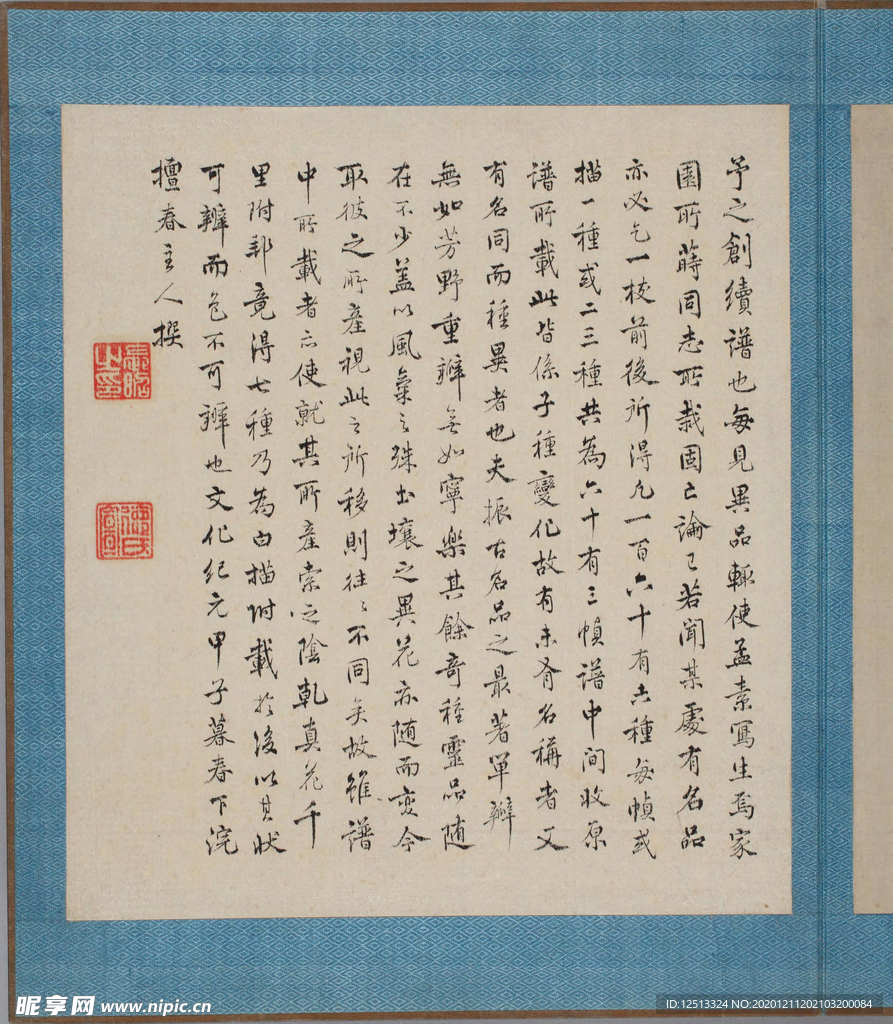 予之創續譜也每見異品輒使孟素寫生焉家
園所蒔同志所栽固亡論已若聞某處有名品
亦必乞一枝前後所得凡一百六十有六種每幀或
描一種或二三種共為六十有三幀譜中間收原
譜所載此皆係子種變化故有未有名稱者又
有名同而種異者也夫振古名品之最著單瓣
無如芳野重瓣無如寧樂其餘奇種靈品随
在不少蓋以風氣之殊土壤之異花亦随而変今
取彼之所產視此之所移則往々不同矣故雖譜
中所載者亦使就其所產索之陰乾真花千
里附郵竟得七種乃為白描附載於後以其状
可辦而色不可辦也文化紀元甲子暮春下浣
擅春主人撰
昵享网 www.nipic.cn
ID:12513324 NO:20201211202103200084